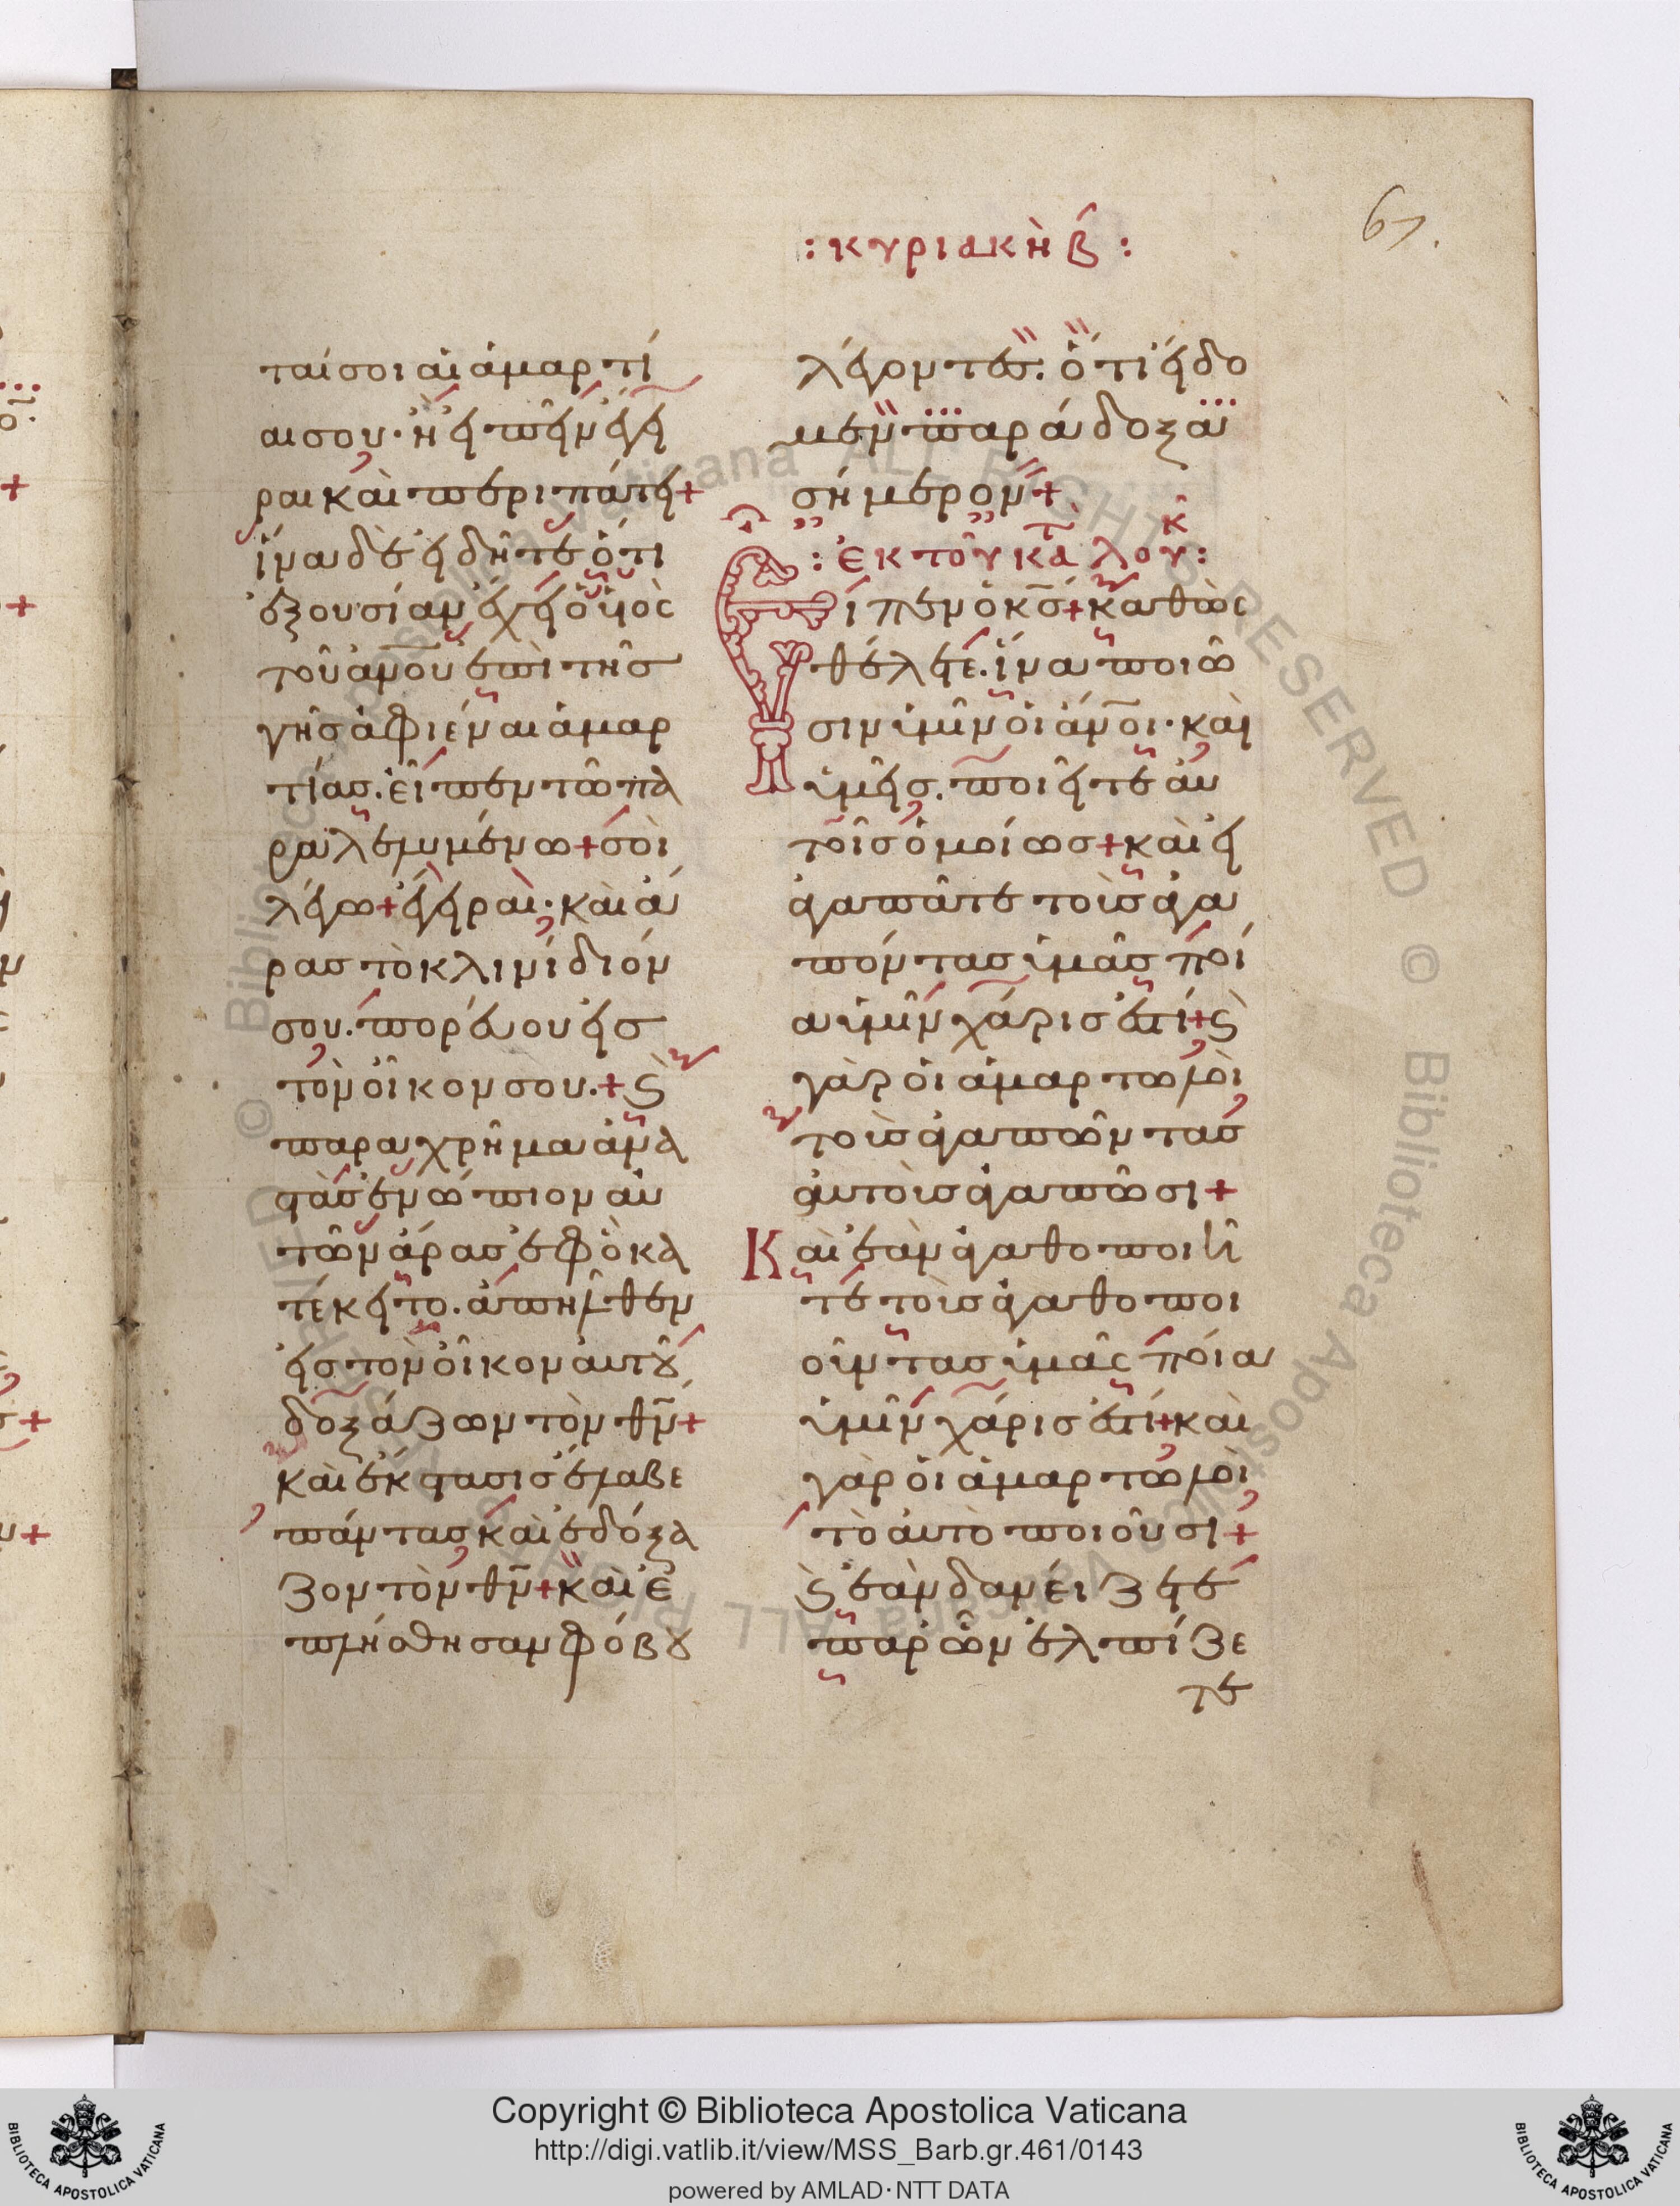 67.
: κυριακὴ β́ :
ταί σοι αἱ ἁμαρτί
αι σου· ἢ εἰπεῖν ἔγει
ραι καὶ περιπάτει+
ἵνα δὲ εἰδῆτε ὅτι
ἐξουσίαν ἔχει ὁ υἱὸς
τοῦ ἀν̅ου ἐπὶ τῆς
γῆς ἀφιέναι ἁμαρ
τίας. εἶπεν τῶ πα
ραλελυμένω+ σοὶ
λέγω+ ἔγειραι· καὶ ἄ
ρας τὸ κλινίδιόν
σου. πορεύου εἰς
τὸν οἶκον σου.+ ϗ̀
παραχρῆμα ἀνα
στὰς ἐνώπιον αὐ
τῶν ἄρας ἐφ ὃ κα
τέκειτο. ἀπῆλθεν
εἰς τὸν οἶκον αὐτοῦ
δοξάζων τὸν θν̅+
καὶ ἔκστασις ἔλαβε
πάντας καὶ ἐδόξα
ζον τὸν θν̅+ καὶ ἐ
πλήσθησαν φόβου
λέγοντες. ὅτι εἴδο
μεν παράδοξα
σήμερον+
: ἐκ τοῦ κατ̅ λουκ̂ :
Εἶπεν ὁ κς̅+ καθὼς
θέλετε. ἵνα ποιῶ
σιν ὑμῖν οἱ ἄν̅οι· καὶ
ὑμεῖς. ποιεῖτε αὐ
τοῖς ὁμοίως+ καὶ εἰ
ἀγαπᾶτε τοὺς ἀγα
πόντας ὑμᾶς ποί
α ὑμῖν χάρις ἐστί+ ϗ̀
γὰρ οἱ ἁμαρτωλοὶ
τοὺς ἀγαπῶντας
αὐτοὺς ἀγαπῶσι+
Καὶ ἐὰν ἀγαθοποιῆ
τε τοὺς ἀγαθοποι
οῦντας ὑμᾶς ποία
ὑμῖν χάρις ἐστί+ καὶ
γὰρ οἱ ἁμαρτωλοὶ
τὸ αὐτὸ ποιοῦσι+
ϗ̀ ἐὰν δανείζητε
παρ ὧν ἐλπίζε
τε
Copyright © Biblioteca Apostolica Vaticana
http://digi.vatlib.it/view/MSS_Barb.gr.461/0143
powered by AMLAD·NTT DATA
BIBLIOTECA APOSTOLICA VATICANA
BIBLIOTECA APOSTOLICA VATICANA